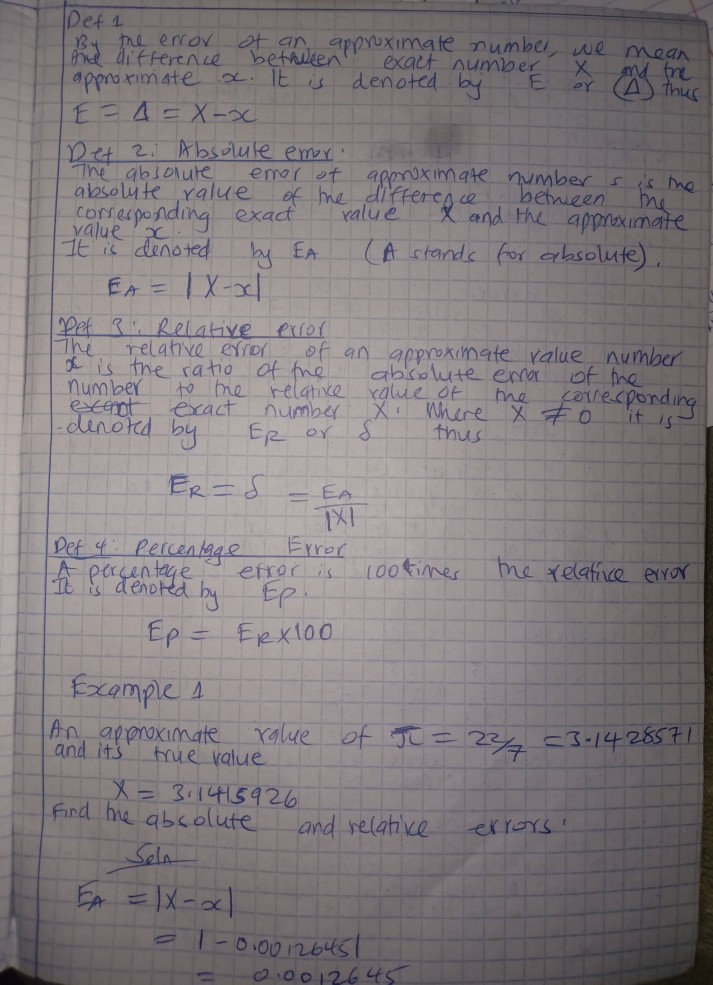 Def 1
By the error of an approximate number, we mean
the difference between exact number X and the
approximate x. It is denoted by E or (Δ) thus
E = Δ = X-x
Def 2: Absolute error.
The absolute error of approximate number s is the
absolute value of the difference between the
corresponding exact value X and the approximate
value x.
It is denoted by EA (A stands for absolute).
EA = |X-x|
Def 3: Relative error
The relative error of an approximate value number
x is the ratio of the absolute error of the
number to the relative value of the corresponding
exact number X. Where X ≠ 0 it is
denoted by ER or δ thus
ER = δ = EA/|X|
Def 4: Percentage Error
A percentage error is 100 times the relative error
It is denoted by Ep.
Ep = ER×100
Example 1
An approximate value of π = 22/7 = 3.1428571
and its true value
X = 3.1415926
Find the absolute and relative errors.
Soln
EA = |X-x|
= |-0.0012645|
= 0.0012645